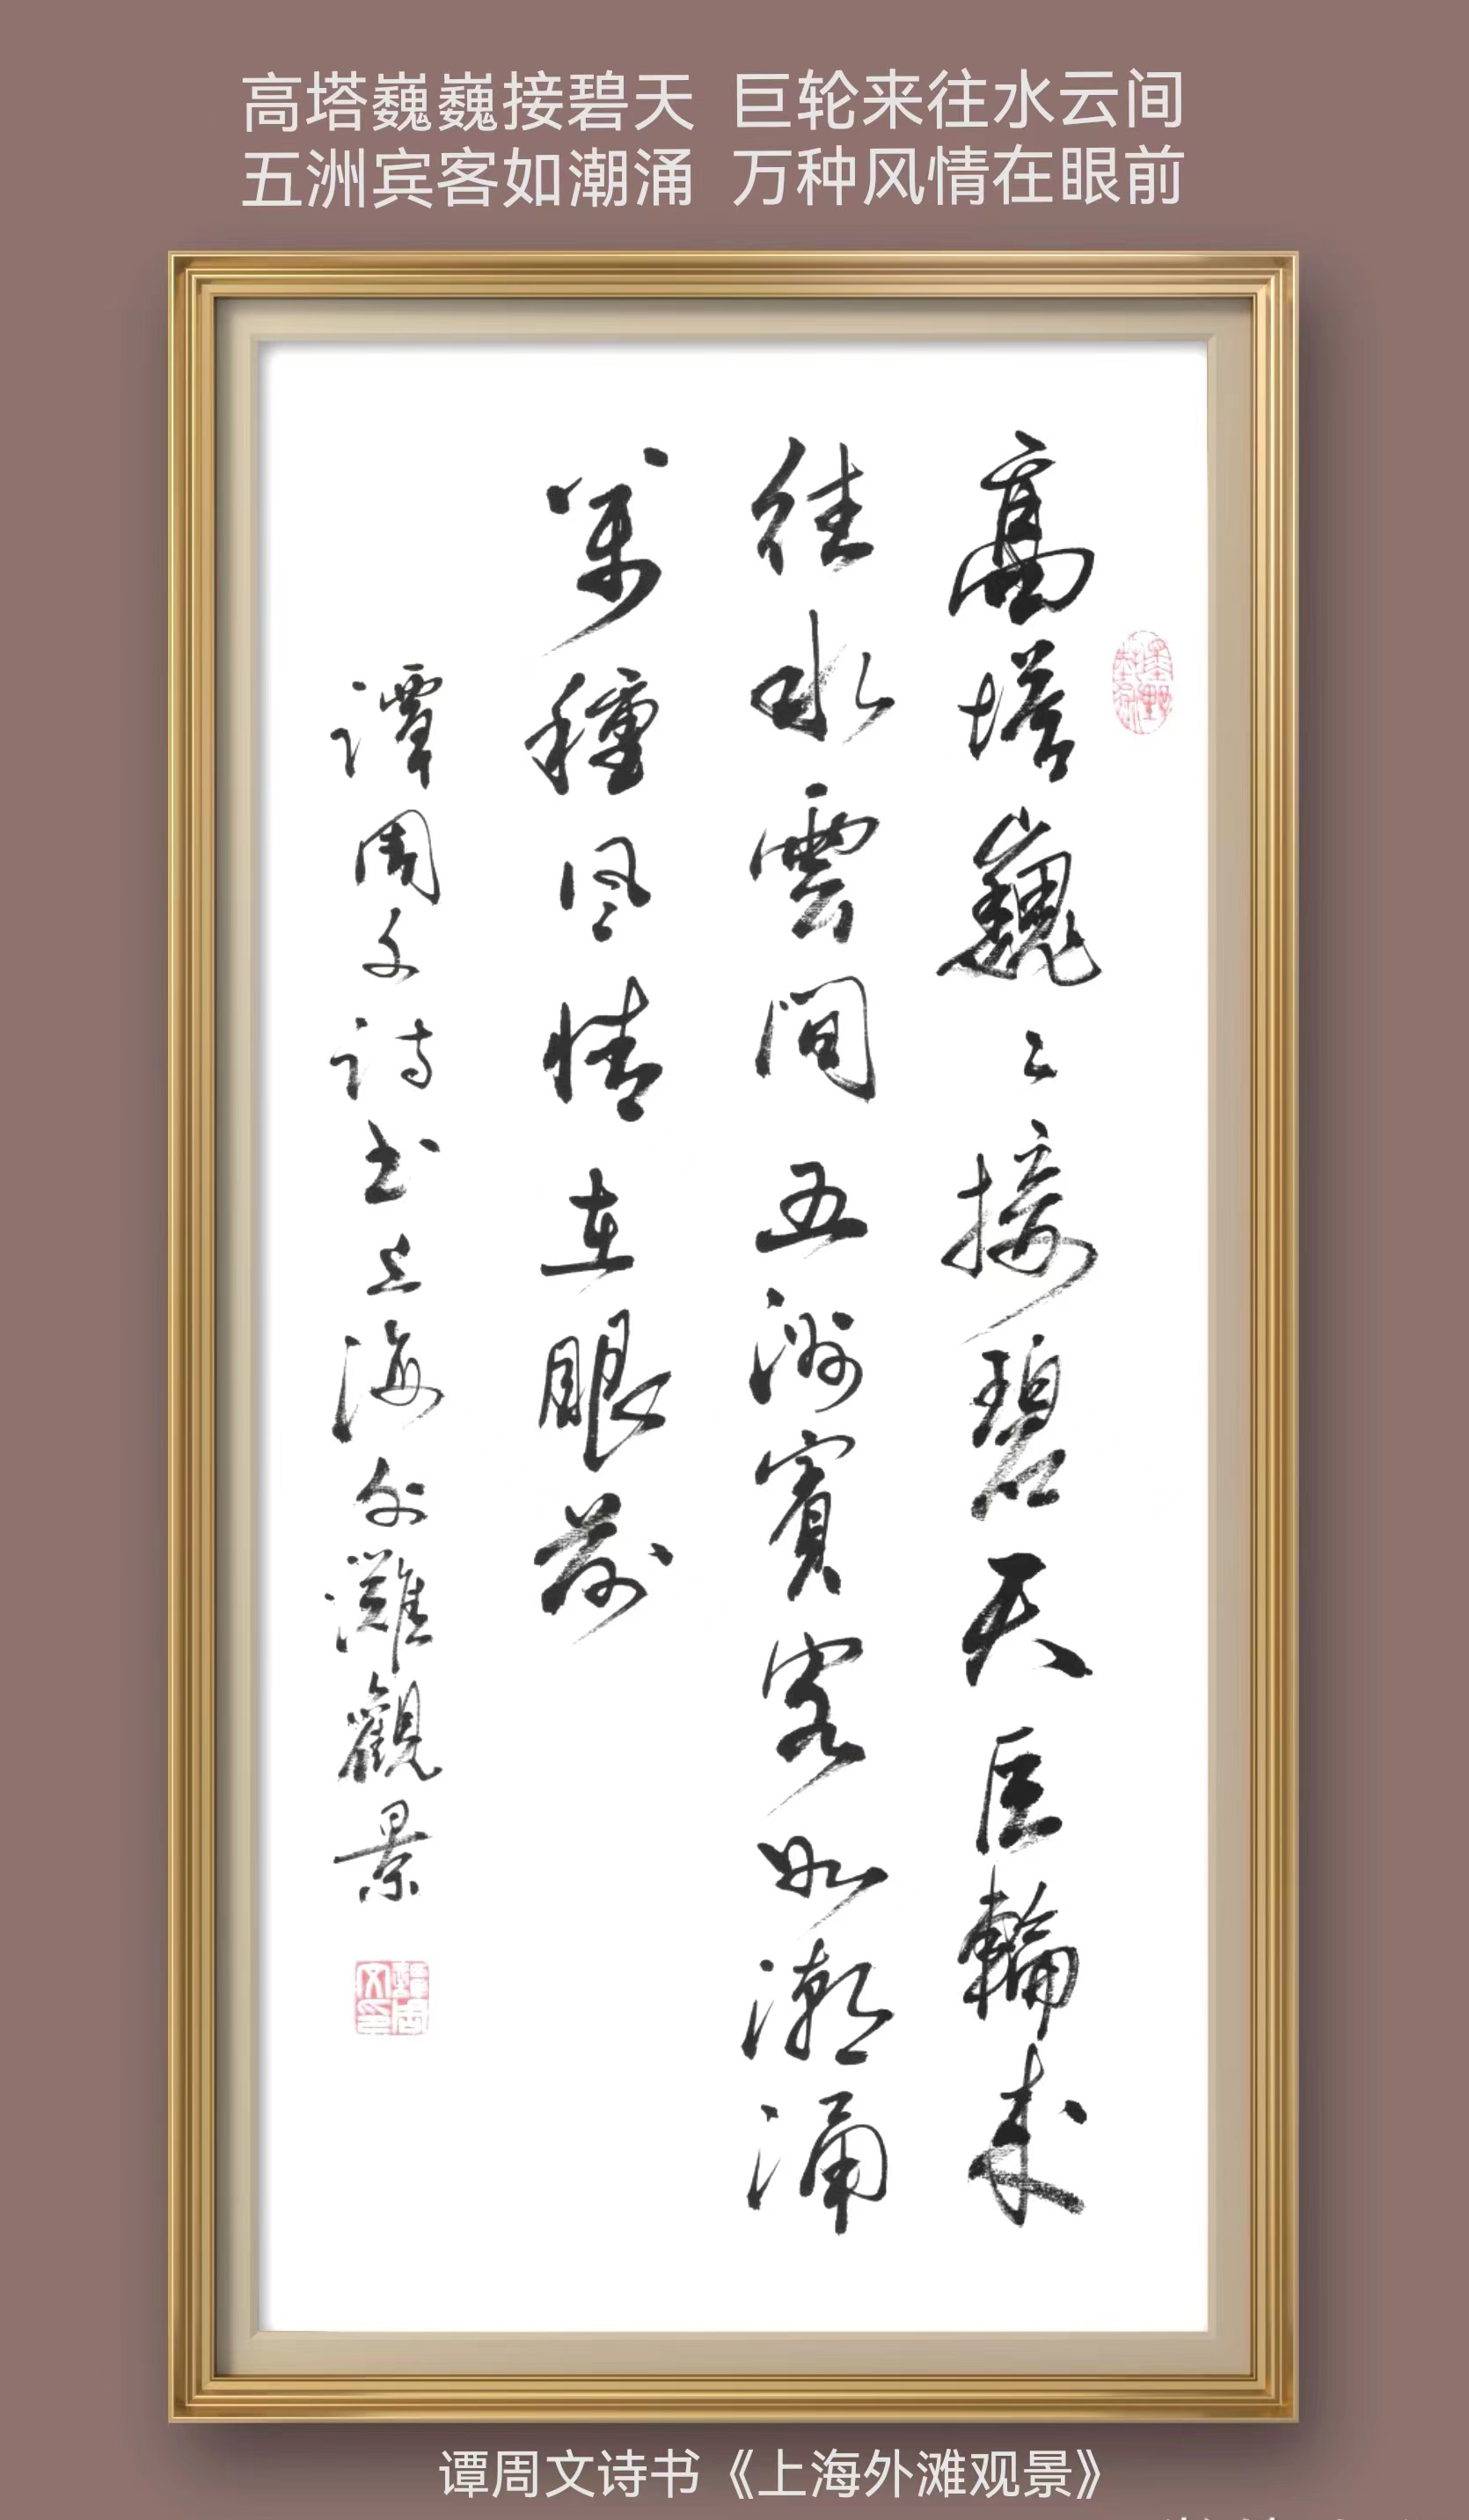 高塔巍巍接碧天 巨轮来往水云间
五洲宾客如潮涌 万种风情在眼前
高塔巍〻接碧天巨輪来
往水雲間五洲賓客如潮涌
萬種风情在眼前
譚周文诗书上海外灘觀景
谭周文诗书《上海外滩观景》